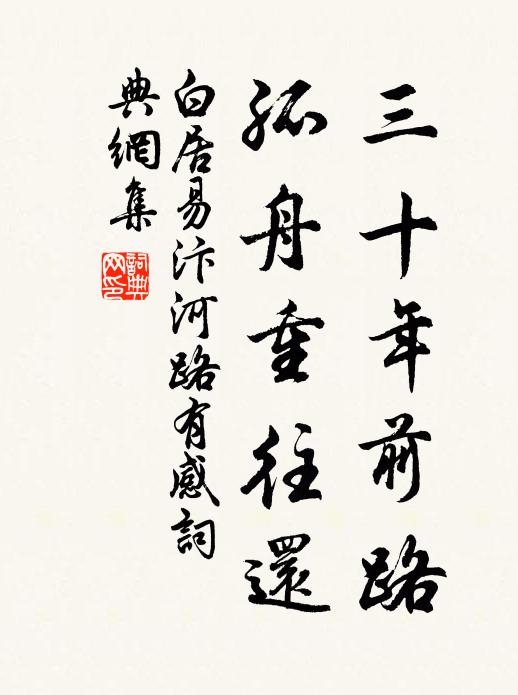 三十年前路
孤舟重往還
白居易汴河路有感詞
典網集
詞典網印